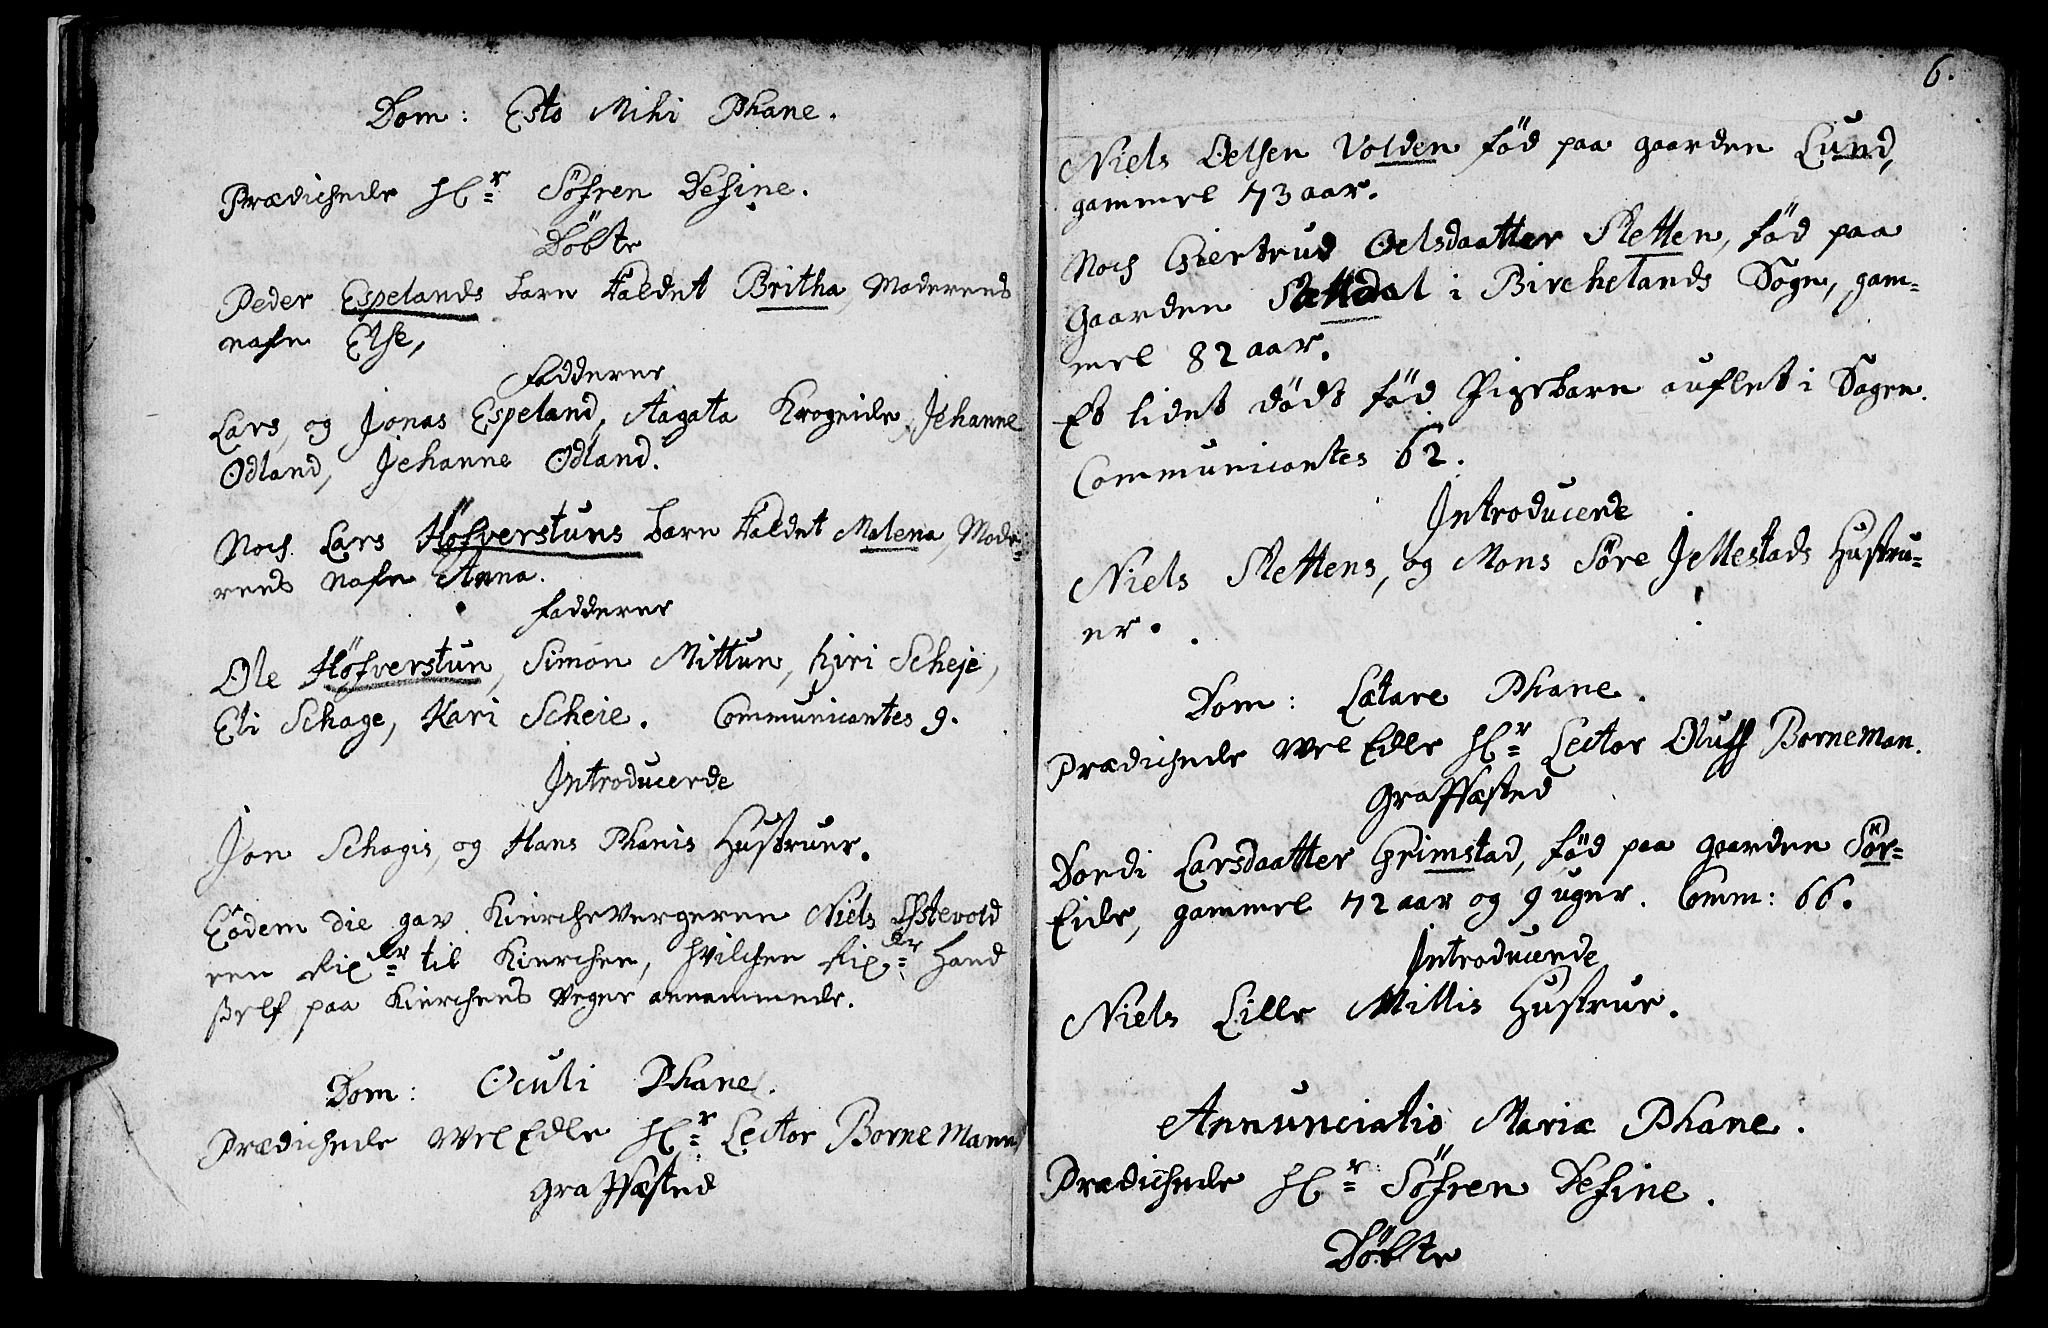 Dom: Esto Mihi Phane.
Prædichede Hr Söfren Define.
Döbte
Peder Espelands barn kaldet Britha, Moderens
nafn Else,
Fadderer
Lars, og Jonas Espeland, Aagata Krogeide, Jehanne
Odland, Jehanne Odland.
Noch Lars Höfverstuns barn kaldet Malena, Mode-
rens nafn Anna.
Fadderer
Ole Höfverstun, Simon Mittun, Kiri Scheje,
Eli Schage, Kari Scheie. Communicantes 9.
Introducerde
Jon Schagis, og Hans Phanis Hustruer.
Eodem die gav Kiercheværgeren Niels Østevold
een Rixdr til Kierchen, hvilchen Rixdr Hand
self paa Kierchens vegne annammede.
Dom: Oculi Phane.
Prædichede WelEdle Hr Lector BorneMann
Graffæsted
6.
Niels Oelsen Volden föd paa gaarden Lund,
gammel 73 aar.
Noch Giertrud Oelsdaatter Sletten, föd paa
Gaarden Slættdal i Birchelands Sogn, gam-
mel 82 aar.
Et lidet dödt föd Pigebarn auflet i Sogen.
Communicantes 62.
Introducerde
Niels Slettens, og Mons Söre Jellestads Hustru-
er.
Dom: Lætare Phane.
Prædichede WelEdle Hr Lector Oluff BorneMan.
Graffæsted
Dordi Larsdaatter Grimstad, föd paa gaarden Sör-
Eide, gammel 72 aar og 9 uger. Comm: 66.
Introducerde
Niels Lille Millis Hustrue.
Annunciatio Mariæ Phane.
Prædichede Hr Söfren Define.
Döbte